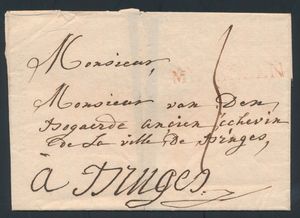 Monsieur,
Monsieur van Den
Bogaerde ancien Echevin
de La ville de Bruges,
à Bruges.